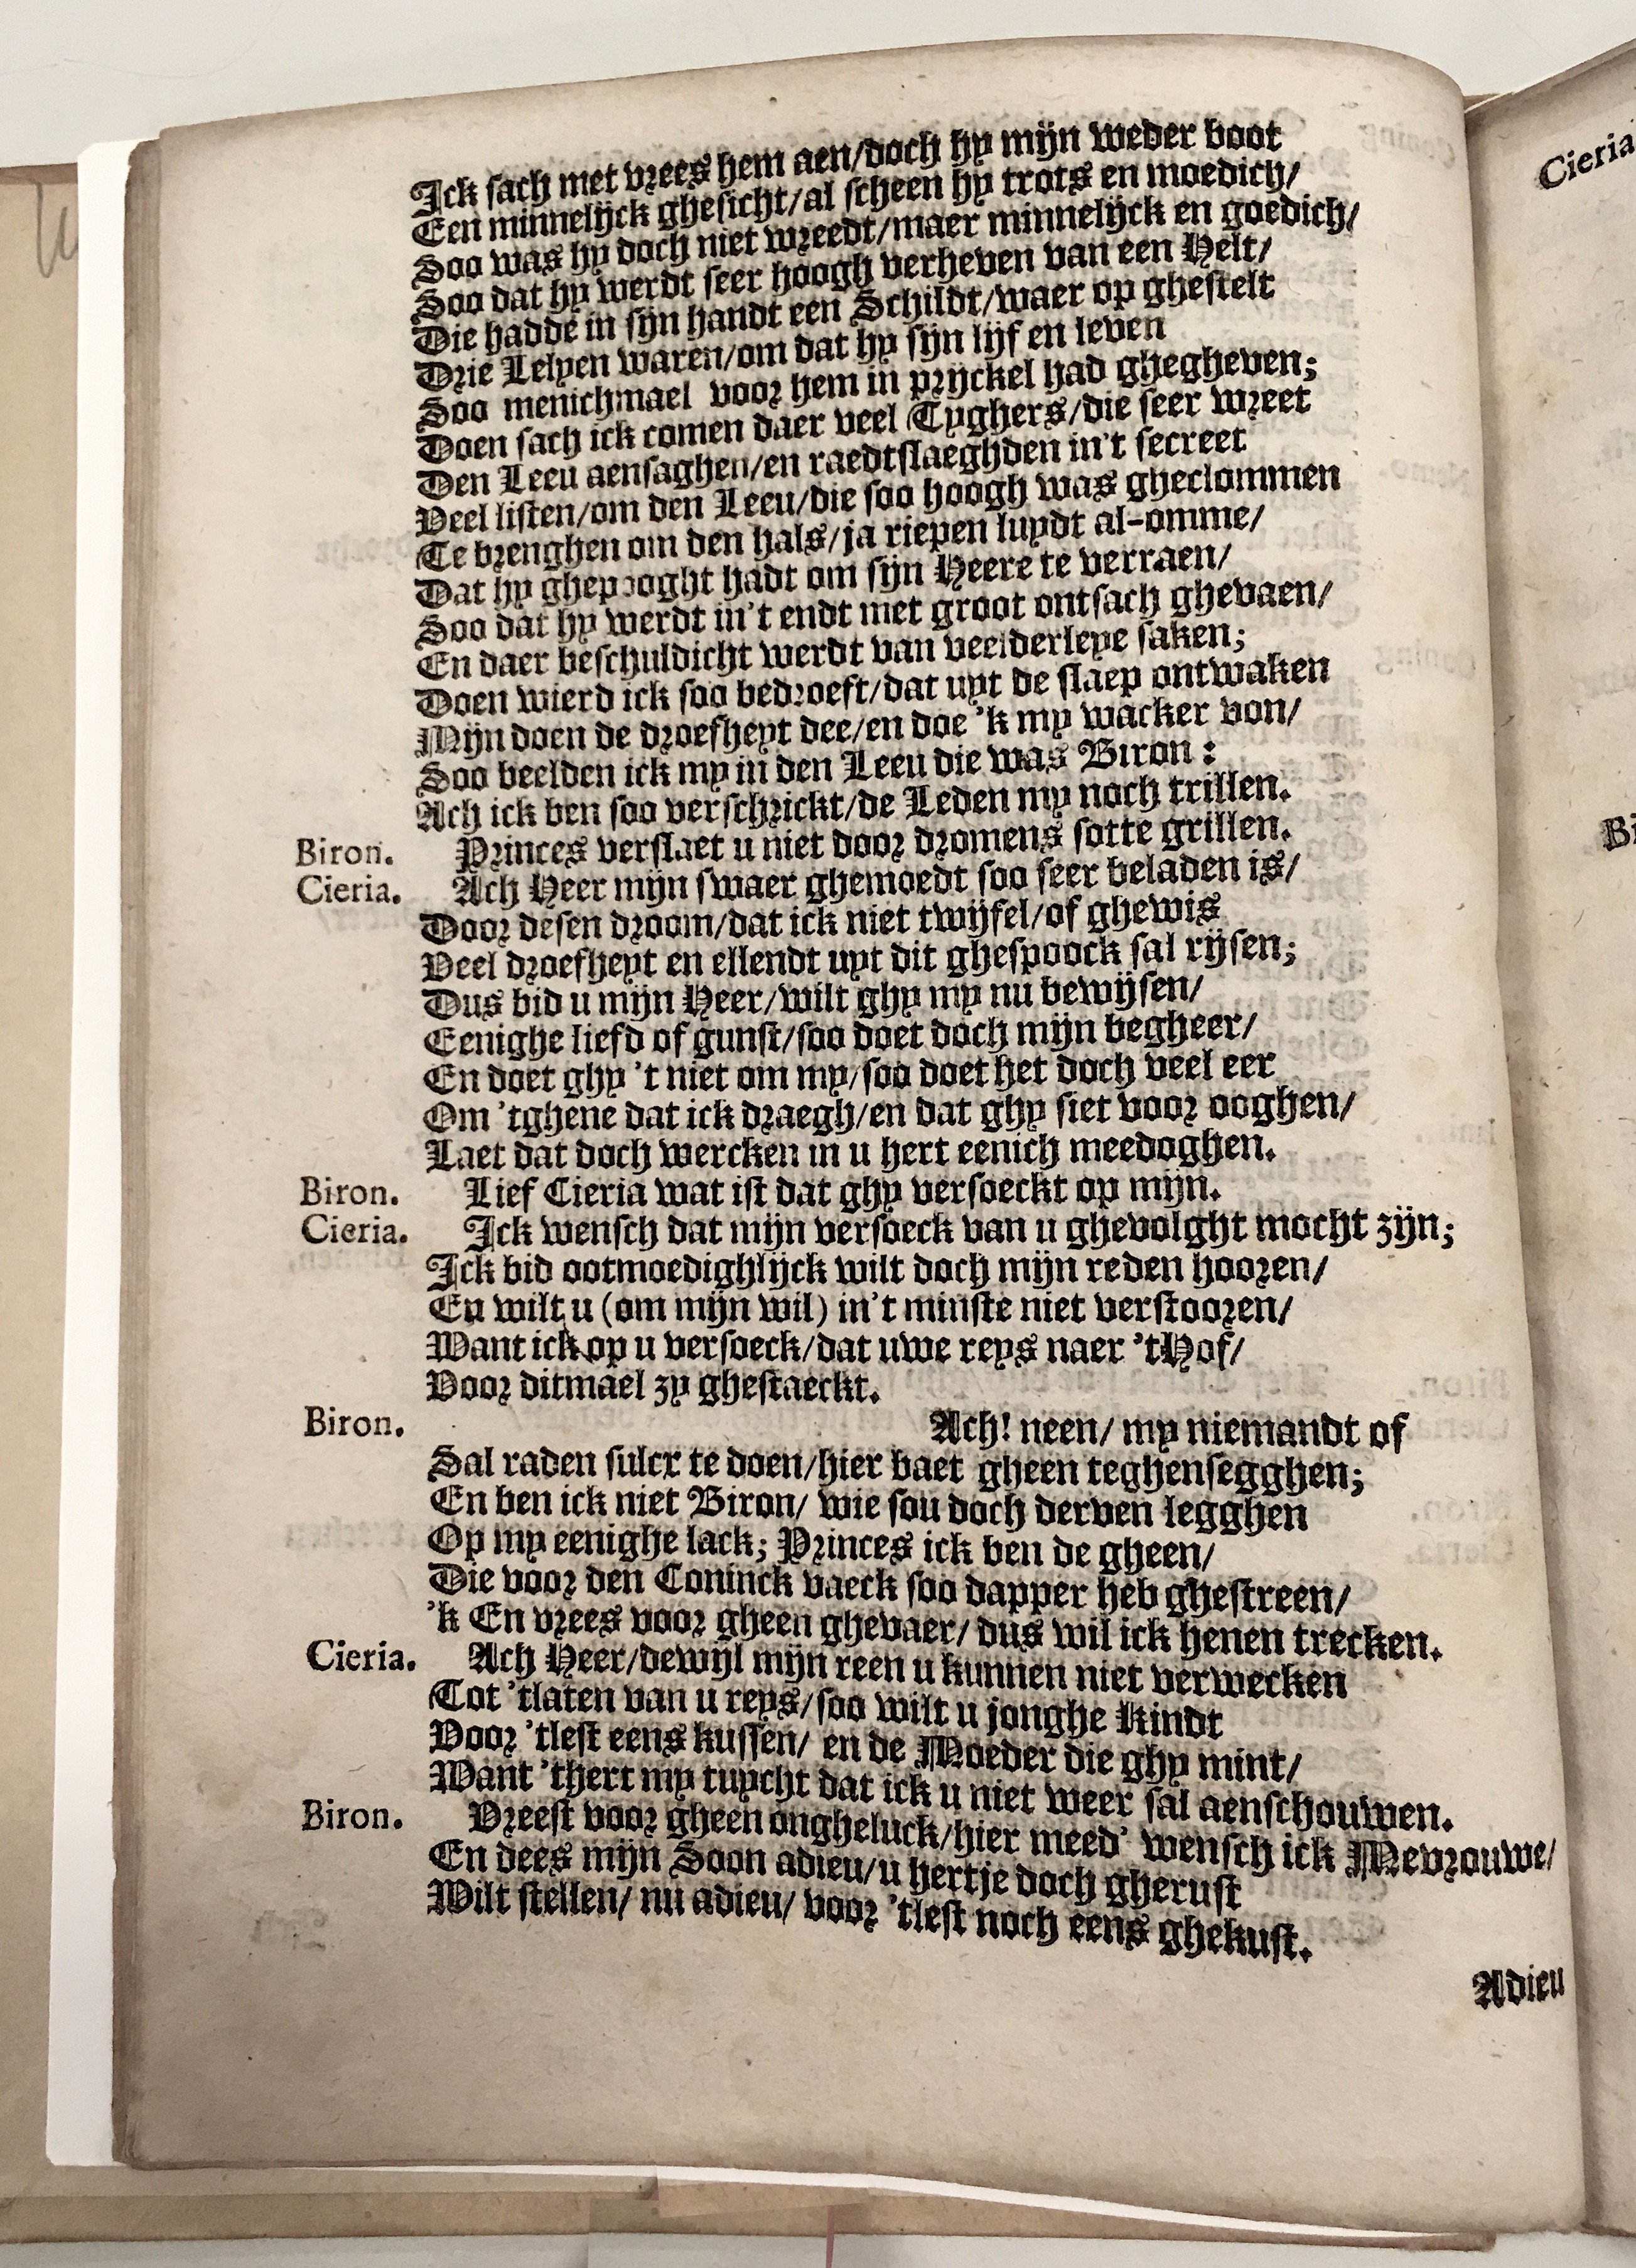 Ick sach met vrees hem aen/doch hy mijn weder boot
Een minnelijck ghesicht/al scheen hy trots en moedich/
Soo was hy doch niet wreedt/maer minnelijck en goedich/
Soo dat hy werdt seer hoogh verheven van een Helt/
Die hadde in sijn handt een Schildt/waer op ghestelt
Drie Lelyen waren/om dat hy sijn lijf en leven
Soo menichmael voor hem in prijckel had ghegheven;
Doen sach ick comen daer veel Tyghers/die seer wreet
Den Leeu aensaghen/en raedtslaeghden in't secreet
Veel listen/om den Leeu/die soo hoogh was gheclommen
Te brenghen om den hals/ja riepen luydt al-omme/
Dat hy ghepooght hadt om sijn Heere te verraen/
Soo dat hy werdt in't endt met groot ontsach ghevaen/
En daer beschuldicht werdt van veelderleye saken;
Doen wierd ick soo bedroeft/dat uyt de slaep ontwaken
Mijn doen de droefheyt dee/en doe 'k my wacker von/
Soo beelden ick my in den Leeu die was Biron:
Ach ick ben soo verschrickt/de Leden my noch trillen.
Biron. Princes verslaet u niet door dromens sotte grillen.
Cieria. Ach Heer mijn swaer ghemoedt soo seer beladen is/
Door desen droom/dat ick niet twijfel/of ghewis
Veel droefheyt en ellendt uyt dit ghespoock sal rijsen;
Dus bid u mijn Heer/wilt ghy my nu bewijsen/
Eenighe liefd of gunst/soo doet doch mijn begheer/
En doet ghy 't niet om my/soo doet het doch veel eer
Om 'tghene dat ick draegh/en dat ghy siet voor ooghen/
Laet dat doch wercken in u hert eenich meedoghen.
Biron. Lief Cieria wat ist dat ghy versoeckt op mijn.
Cieria. Ick wensch dat mijn versoeck van u ghevolght mocht zijn;
Ick bid ootmoedighlijck wilt doch mijn reden hooren/
En wilt u (om mijn wil) in't minste niet verstooren/
Want ick op u versoeck/dat uwe reys naer 'tHof/
Voor ditmael zy ghestaeckt.
Biron. Ach! neen/ my niemandt of
Sal raden sulcx te doen/hier baet gheen teghensegghen;
En ben ick niet Biron/ wie sou doch derven legghen
Op my eenighe lack; Princes ick ben de gheen/
Die voor den Coninck vaeck soo dapper heb ghestreen/
'k En vrees voor gheen ghevaer/ dus wil ick henen trecken.
Cieria. Ach Heer/dewijl mijn reen u kunnen niet verwecken
Tot 'tlaten van u reys/soo wilt u jonghe Kindt
Voor 'tlest eens kussen/ en de Moeder die ghy mint/
Want 'thert my tuycht dat ick u niet weer sal aenschouwen.
Biron. Vreest voor gheen ongheluck/hier meed' wensch ick Mevrouwe/
En dees mijn Soon adieu/u hertje doch gherust
Wilt stellen/ nu adieu/ voor 'tlest noch eens ghekust.
Adieu
Cieria
Bi